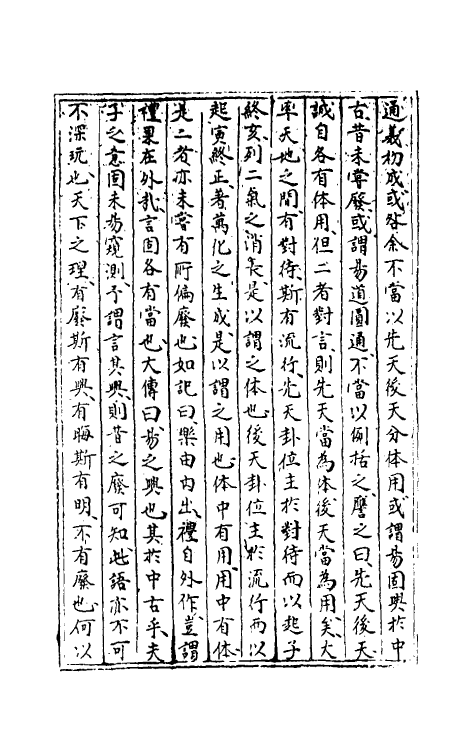 通義初成或咎余不當以先天後天分体用或謂易固興於中
古昔未嘗廢或謂易道圓通不當以例括之應之曰先天後天
誠自各有体用但二者對言則先天當為体後天當為用矣大
率天地之間有對待斯有流行先天卦位主於對待而以起子
終亥列二氣之消長是以謂之体也後天卦位主於流行而以
起寅終丑著萬化之生成是以謂之用也体中有用用中有体
是二者亦未嘗有所偏廢也如記曰樂由内出禮自外作豈謂
禮果在外哉言固各有當也大傳曰易之興也其於中古乎夫
子之意固未易窺測予謂言其興則昔之廢可知此語亦不可
不深玩也天下之理有廢斯有興有晦斯有明不有廢也何以